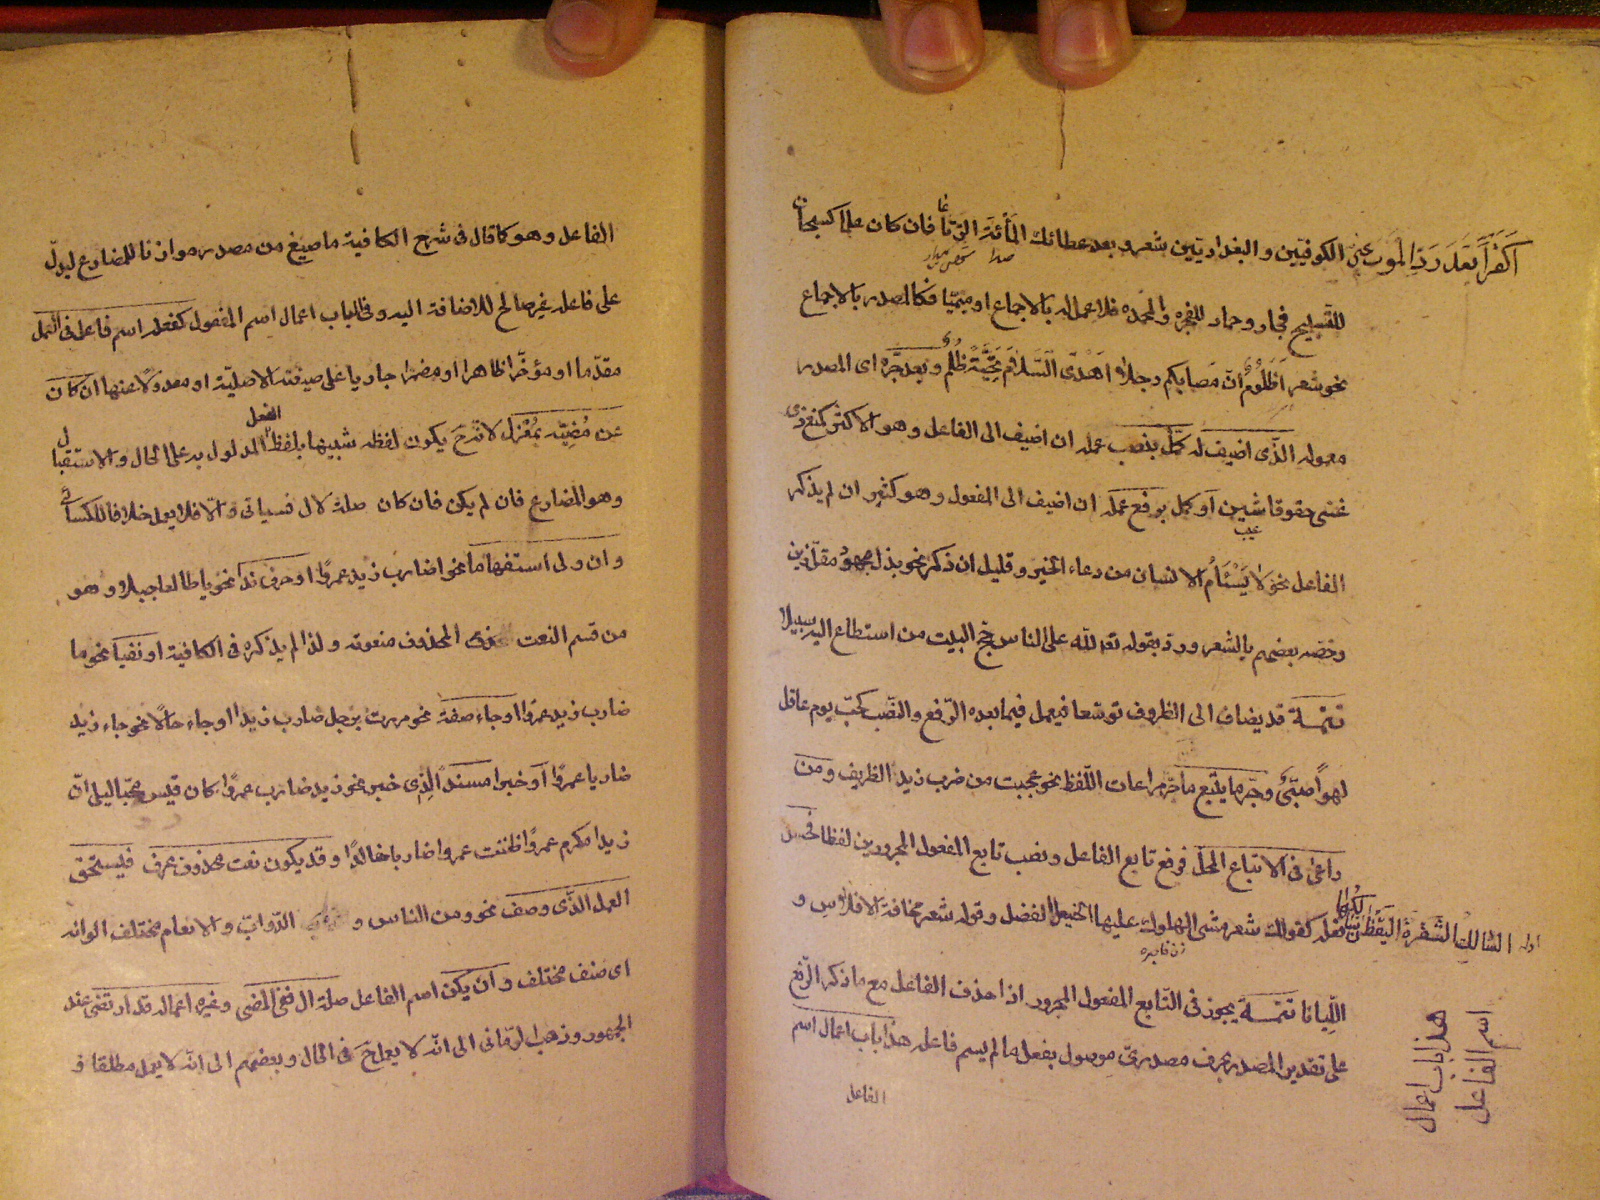 اَكُفْرًا بَعْدَ رَدِّ الْمَوْتِ عَنِّي
عند الكوفيّين والبغداديّين شعر وبعد عطائك المائة الرّتاعا فان كان علما كسبحان
للتسبيح فجار وحماد للفجرة والمحمدة فلا عمل له بالاجماع او ميميّا فكالمصدر بالاجماع
نحو شعر اَظَلُومُ اِنَّ مُصَابَكُم رجلا اَهْدَى السَّلامَ تَحِيَّةً ظُلْمٌ وبعد جرّه اى المصدر
معموله الّذى اضيف له كمّل بنصب عمله ان اضيف الى الفاعل وهو الاكثر كمنع ذى
غنى حقوقا شين او كمل برفع عمله ان اضيف الى المفعول وهو كثير ان لم يذكر
عيب
الفاعل نحو لا يَسْئَامُ الانسان من دعاء الخير وقليل ان ذكر نحو بذل مجهود مقلّ زين
وخصه بعضهم بالشعر ورد بقوله تع لله على الناس حج البيت من استطاع اليه سبيلا
تتمّة قد يضاف الى الظروف توسّعا فيعمل فيما بعده الرّفع والنّصب كحبّ يوم عاقل
لهوًا صبىّ وجرّ ما يتبع ما جرّ مراعات اللّفظ نحو عجبت من ضرب زيد الظريف ومن
راعى فى الاتباع المحلّ فرفع تابع الفاعل ونصب تابع المفعول المجرورين لفظا فحسن
فعله كقولك شعر مشى الهلوك عليها الخيعل الفضل وقوله شعر مخافة الافلاس و
اوله السّالِكُ الثُّغْرَةَ الْيَقْظَانَ سَالِكُهَا
زن فاجره
اللّيانا تتمّة يجوز فى التّابع المفعول المجرور اذا حذف الفاعل مع ما ذكر الرّفع
على تقدير المصدر بحرف مصدرىّ موصول بفعل ما لم يسم فاعله هذا باب اعمال اسم
الفاعل
هذا باب اعمال
اسم الفاعل
الفاعل وهو كما قال فى شرح الكافية ما صيغ من مصدر موازنا للمضارع ليدلّ
على فاعله غير صالح للاضافة اليه وفى الباب اعمال اسم المفعول كفعله اسم فاعل فى العمل
مقدّما او مؤخّرا ظاهرا او مضمرا جاريا على صيغته الاصليّة او معدولا عنها ان كان
عن مُضِيّه بِمَعْزَل لانّه ح يكون لفظه شبيها بلفظ الفعل المدلول به على الحال والاستقبال
وهو المضارع فان لم يكن فان كان صلة لال فسياتى والّا فلا يعمل خلافا للكسائى
وان ولى استفهاما نحو اضارب زيد عمروًا او حرف ندا نحو يا طالعا جبلا وهو
من قسم النعت المحذوف منعوته ولذا لم يذكره فى الكافية او نفيا نحو ما
ضارب زيد عمروًا او جاء صفة نحو مررت برجل ضارب زيدا او جاء حالا نحو جاء زيد
ضاربا عمروًا او خبرا مسندًا لذى خبر نحو زيد ضارب عمروًا كان قيس محبّا ليلى انّ
زيدا مكرم عمروًا ظننت عمروا ضاربا خالدًا وقد يكون نعت محذوف عرف فيستحق
العمل الّذى وصف نحو ومن الناس و الدّوابّ والانعام مختلف الوانه
اى صنف مختلف وان يكن اسم الفاعل صلة ال ففى المضى وغيره اعماله قد ارتضى عند
الجمهور وذهب الرّمانى الى انّه لا يعمل ح فى الحال وبعضهم الى انّه لا يعمل مطلقا و